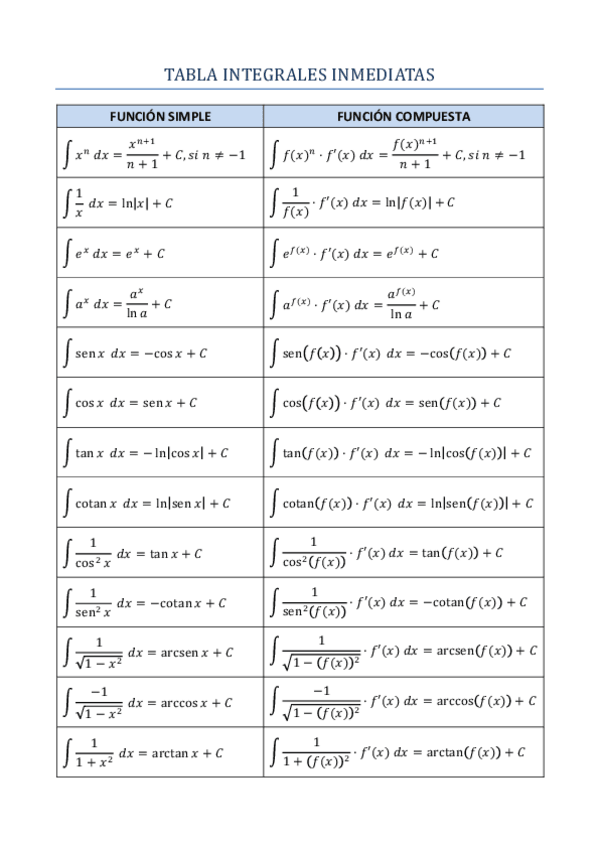 TABLA INTEGRALES INMEDIATAS
FUNCIÓN SIMPLE	FUNCIÓN COMPUESTA
∫ xⁿ dx = xⁿ⁺¹/(n + 1) + C, si n ≠ −1	∫ f(x)ⁿ · f′(x) dx = f(x)ⁿ⁺¹/(n + 1) + C, si n ≠ −1
∫ 1/x dx = ln|x| + C	∫ 1/f(x) · f′(x) dx = ln|f(x)| + C
∫ eˣ dx = eˣ + C	∫ e^f(x) · f′(x) dx = e^f(x) + C
∫ aˣ dx = aˣ/ln a + C	∫ a^f(x) · f′(x) dx = a^f(x)/ln a + C
∫ sen x dx = −cos x + C	∫ sen(f(x)) · f′(x) dx = −cos(f(x)) + C
∫ cos x dx = sen x + C	∫ cos(f(x)) · f′(x) dx = sen(f(x)) + C
∫ tan x dx = − ln|cos x| + C	∫ tan(f(x)) · f′(x) dx = − ln|cos(f(x))| + C
∫ cotan x dx = ln|sen x| + C	∫ cotan(f(x)) · f′(x) dx = ln|sen(f(x))| + C
∫ 1/cos² x dx = tan x + C	∫ 1/cos²(f(x)) · f′(x) dx = tan(f(x)) + C
∫ 1/sen² x dx = −cotan x + C	∫ 1/sen²(f(x)) · f′(x) dx = −cotan(f(x)) + C
∫ 1/√(1 − x²) dx = arcsen x + C	∫ 1/√(1 − (f(x))²) · f′(x) dx = arcsen(f(x)) + C
∫ −1/√(1 − x²) dx = arccos x + C	∫ −1/√(1 − (f(x))²) · f′(x) dx = arccos(f(x)) + C
∫ 1/(1 + x²) dx = arctan x + C	∫ 1/(1 + (f(x))²) · f′(x) dx = arctan(f(x)) + C